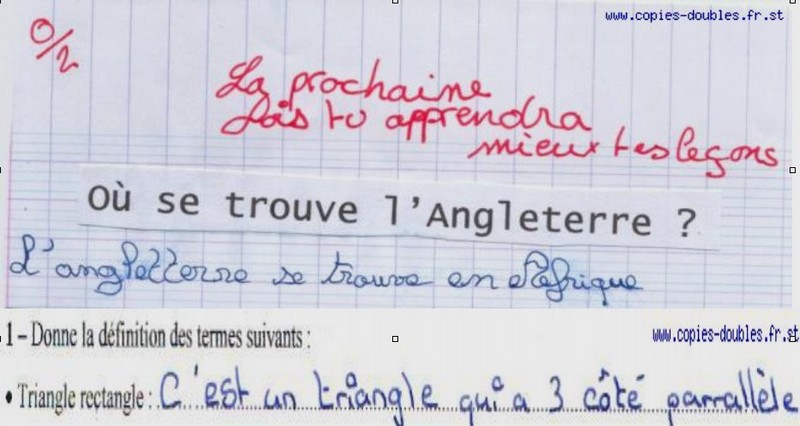 www.copies-doubles.fr.st
0/2
La prochaine
fois tu apprendra
mieux tes leçons
Où se trouve l'Angleterre ?
L'angletterre se trouve en Afrique
1 – Donne la définition des termes suivants :
www.copies-doubles.fr.st
• Triangle rectangle : C'est un triangle qui a 3 côté parrallèle